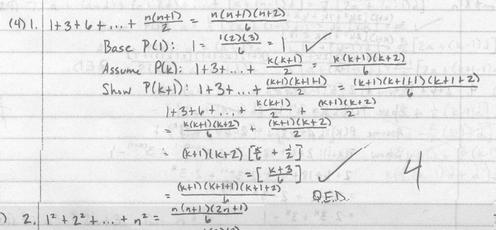 (4) 1. 1+3+6+...+ n(n+1)/2 = n(n+1)(n+2)/6
Base P(1): 1 = 1(2)(3)/6 = 1 ✓
Assume P(k): 1+3+...+ k(k+1)/2 = k(k+1)(k+2)/6
Show P(k+1): 1+3+...+ (k+1)(k+1+1)/2 = (k+1)(k+1+1)(k+1+2)/6
1+3+6+...+ k(k+1)/2 + (k+1)(k+2)/2
= k(k+1)(k+2)/6 + (k+1)(k+2)/2
= (k+1)(k+2) [k/6 + 1/2]
= [k+3/6] ✓ 4
= (k+1)(k+1+1)(k+1+2)/6 Q.E.D.
) 2. 1² + 2² + ... + n² = n(n+1)(2n+1)/6